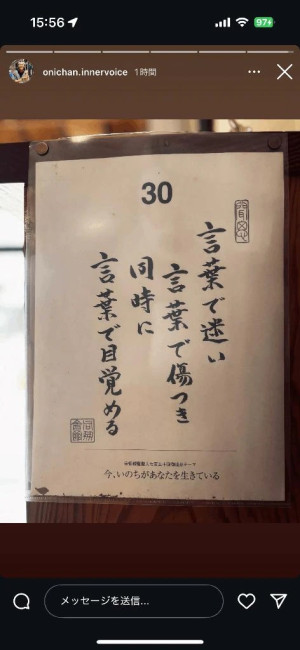 15:56
97
onichan.innervoice 1時間
30
言葉で迷い
言葉で傷つき
同時に
言葉で目覚める
今、いのちがあなたを生きている
メッセージを送信...